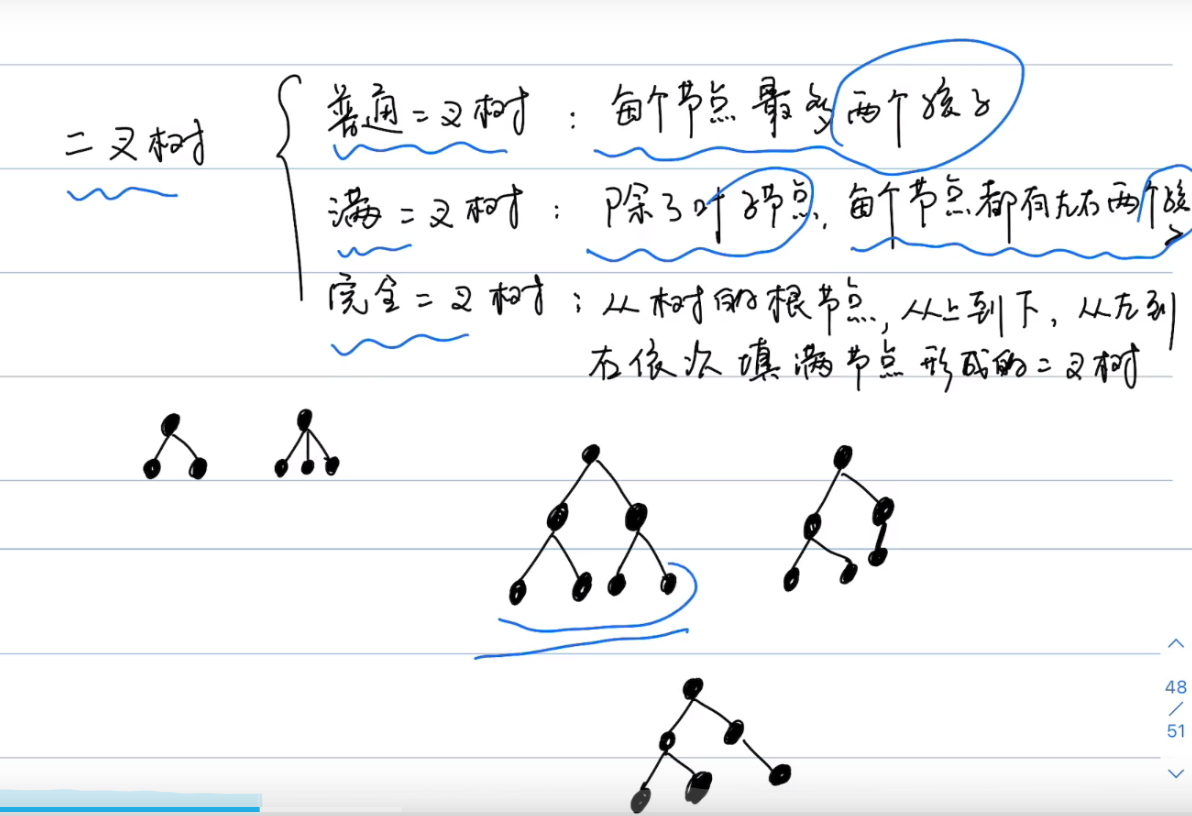 二叉树
普通二叉树：每个节点最多两个孩子
满二叉树：除了叶子节点，每个节点都有左右两个孩子
完全二叉树：从树的根节点，从上到下，从左到
右依次填满节点形成的二叉树
48
/
51